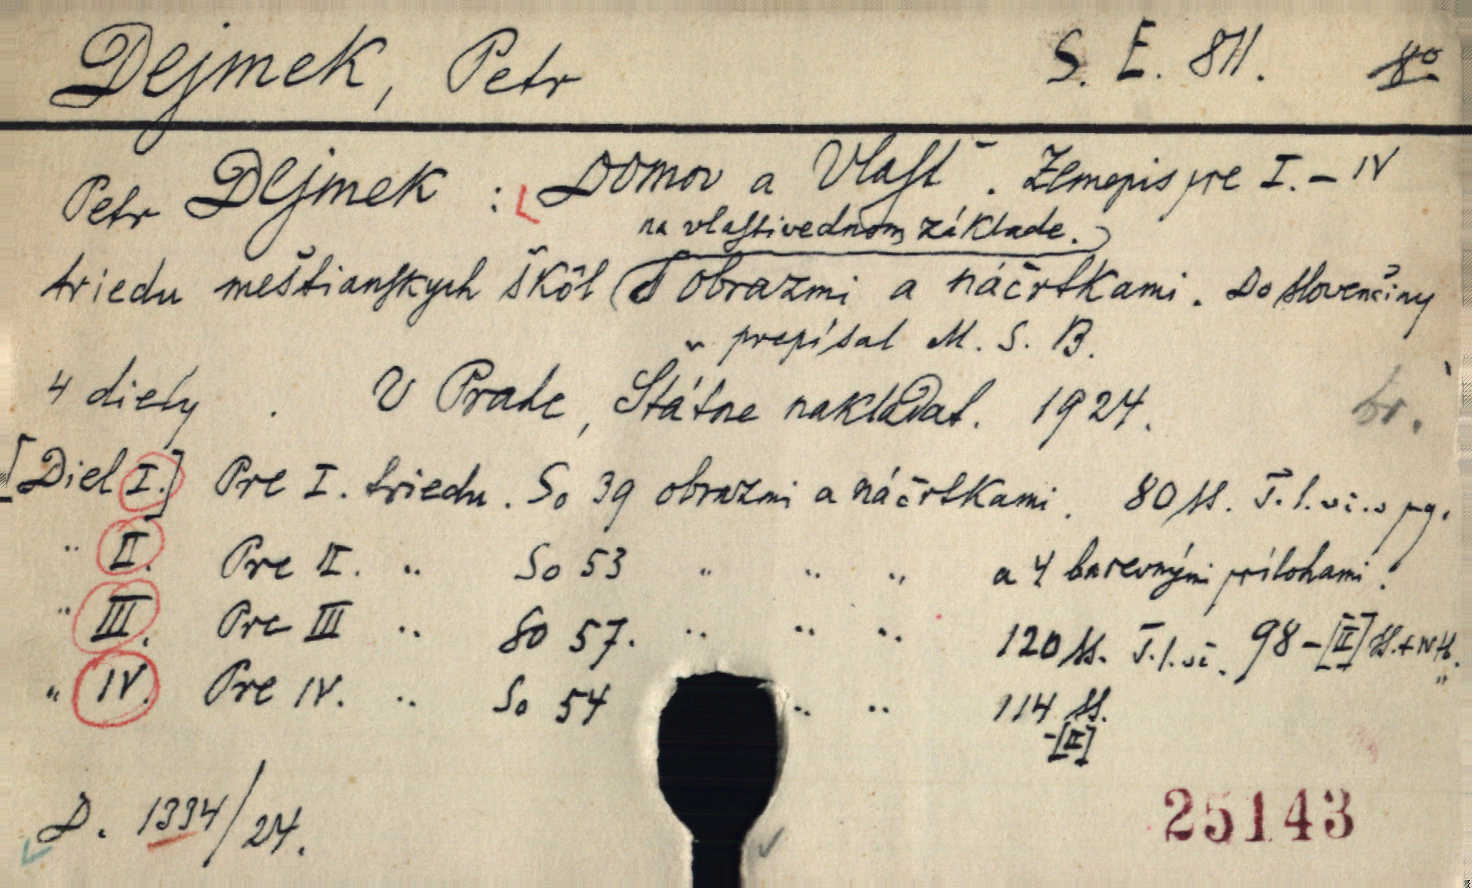 Dejmek, Petr S. E. 811. 8°
Petr Dejmek : Domov a Vlasť. Zemepis pre I. – IV
na vlastivednom základe.
triedu meštianskych škôl (S obrazmi a náčrtkami. Do slovenčiny
" prepísal M. S. B.
4 diely . V Prahe, Státne nakladat. 1924. br.
[Diel I.] Pre I. triedu. So 39 obrazmi a náčrtkami. 80 ss. T. l. vč. v pg.
" II. Pre II. " So 53 " " " a 4 barevnými prílohami.
" III. Pre III " So 57. " " " 120 ss. T. l. vč. 98-[II] ss. + IV
" IV. Pre IV. " So 54 " " 114 ss.
-[II]
D. 1334/24.
25143